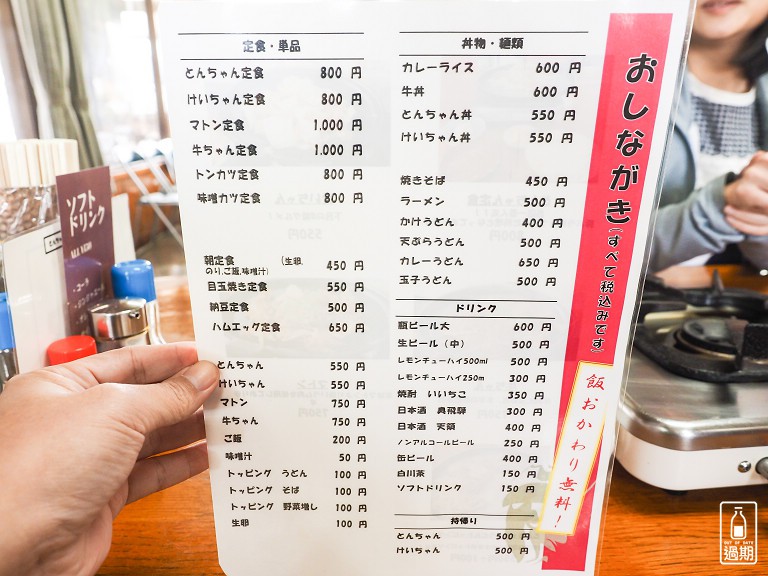 おしながき(すべて税込みです)
飯おかわり無料!
定食・単品
とんちゃん定食 800 円
けいちゃん定食 800 円
マトン定食 1,000 円
牛ちゃん定食 1,000 円
トンカツ定食 800 円
味噌カツ定食 800 円
朝定食 (生卵、のり、ご飯、味噌汁) 450 円
目玉焼き定食 550 円
納豆定食 500 円
ハムエッグ定食 650 円
とんちゃん 550 円
けいちゃん 550 円
マトン 750 円
牛ちゃん 750 円
ご飯 200 円
味噌汁 50 円
トッピング うどん 100 円
トッピング そば 100 円
トッピング 野菜増し 100 円
生卵 100 円
丼物・麺類
カレーライス 600 円
牛丼 600 円
とんちゃん丼 550 円
けいちゃん丼 550 円
焼きそば 450 円
ラーメン 500 円
かけうどん 400 円
天ぷらうどん 500 円
カレーうどん 650 円
玉子うどん 500 円
ドリンク
瓶ビール大 600 円
生ビール(中) 500 円
レモンチューハイ500ml 500 円
レモンチューハイ250m 300 円
焼酎 いいちこ 350 円
日本酒 奥飛騨 300 円
日本酒 天領 400 円
ノンアルコールビール 250 円
缶ビール 400 円
白川茶 150 円
ソフトドリンク 150 円
持帰り
とんちゃん 500 円
けいちゃん 500 円
ソフト
ドリンク
OUT OF DATE
過期